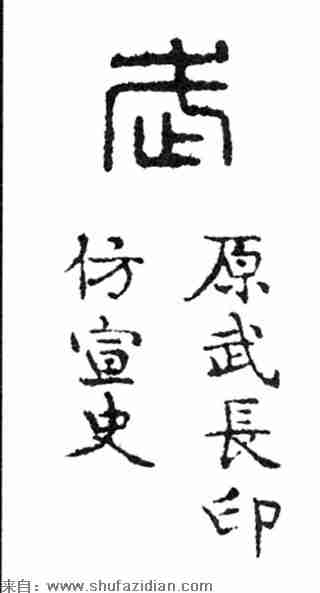 武
原武長印
仿宣史
来自：www.shufazidian.com